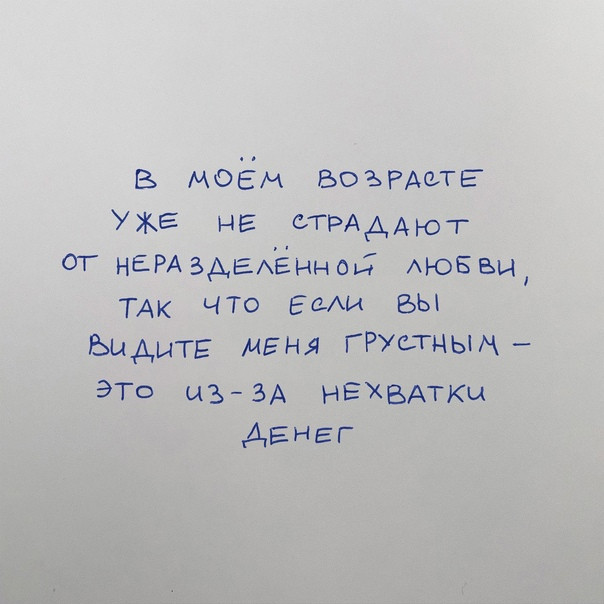 В МОЁМ ВОЗРАСТЕ
УЖЕ НЕ СТРАДАЮТ
ОТ НЕРАЗДЕЛЁННОЙ ЛЮБВИ,
ТАК ЧТО ЕСЛИ ВЫ
ВИДИТЕ МЕНЯ ГРУСТНЫМ –
ЭТО ИЗ-ЗА НЕХВАТКИ
ДЕНЕГ